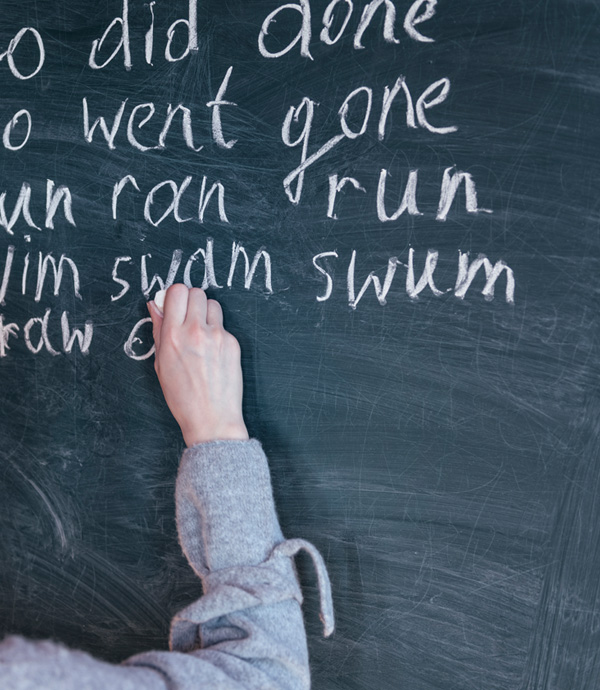 o did done
o went gone
un ran run
im swam swum
raw d